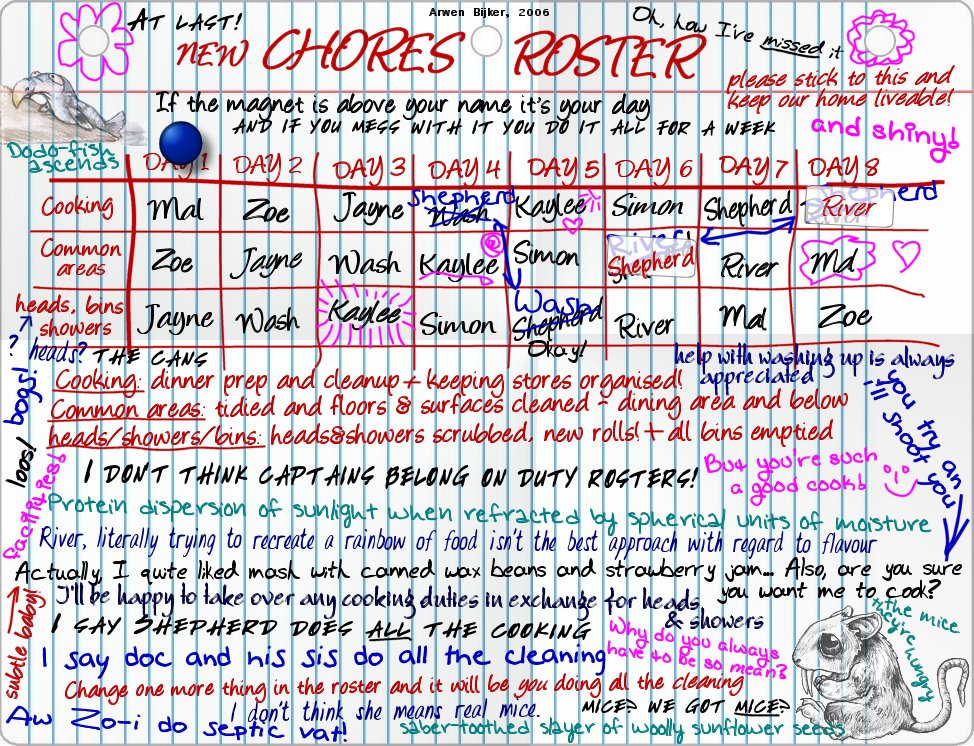 Arwen Bijker, 2006
AT LAST!
Oh, how I've missed it
NEW CHORES ROSTER
please stick to this and
keep our home liveable!
and shiny!
If the magnet is above your name it's your day
AND IF YOU MESS WITH IT YOU DO IT ALL FOR A WEEK
Dodo-fish
ascends
DAY 1 DAY 2 DAY 3 DAY 4 DAY 5 DAY 6 DAY 7 DAY 8
Cooking Mal Zoe Jayne Shepherd Wash Kaylee Simon Shepherd Shepherd River River
Common areas Zoe Jayne Wash Kaylee Simon River! Shepherd River Mal
heads, bins showers Jayne Wash Kaylee Simon Wash Shepherd Okay! River Mal Zoe
? heads? THE CANS
bogs!
loos!
facilities!
help with washing up is always
appreciated
Cooking: dinner prep and cleanup + keeping stores organised!
Common areas: tidied and floors & surfaces cleaned - dining area and below
heads/showers/bins: heads&showers scrubbed, new rolls! + all bins emptied
you try an
I'll shoot you
I DON'T THINK CAPTAINS BELONG ON DUTY ROSTERS!
But you're such
a good cook!
Protein dispersion of sunlight when refracted by spherical units of moisture
River, literally trying to recreate a rainbow of food isn't the best approach with regard to flavour
Actually, I quite liked mash with canned wax beans and strawberry jam... Also, are you sure
you want me to cook?
I'll be happy to take over any cooking duties in exchange for heads
& showers
subtle baby!
I SAY SHEPHERD DOES ALL THE COOKING
Why do you always
have to be so mean?
I say doc and his sis do all the cleaning
the mice
they're hungry
Change one more thing in the roster and it will be you doing all the cleaning
Aw Zo-i do septic vat!
I don't think she means real mice.
MICE? WE GOT MICE?
saber-toothed slayer of woolly sunflower seeds